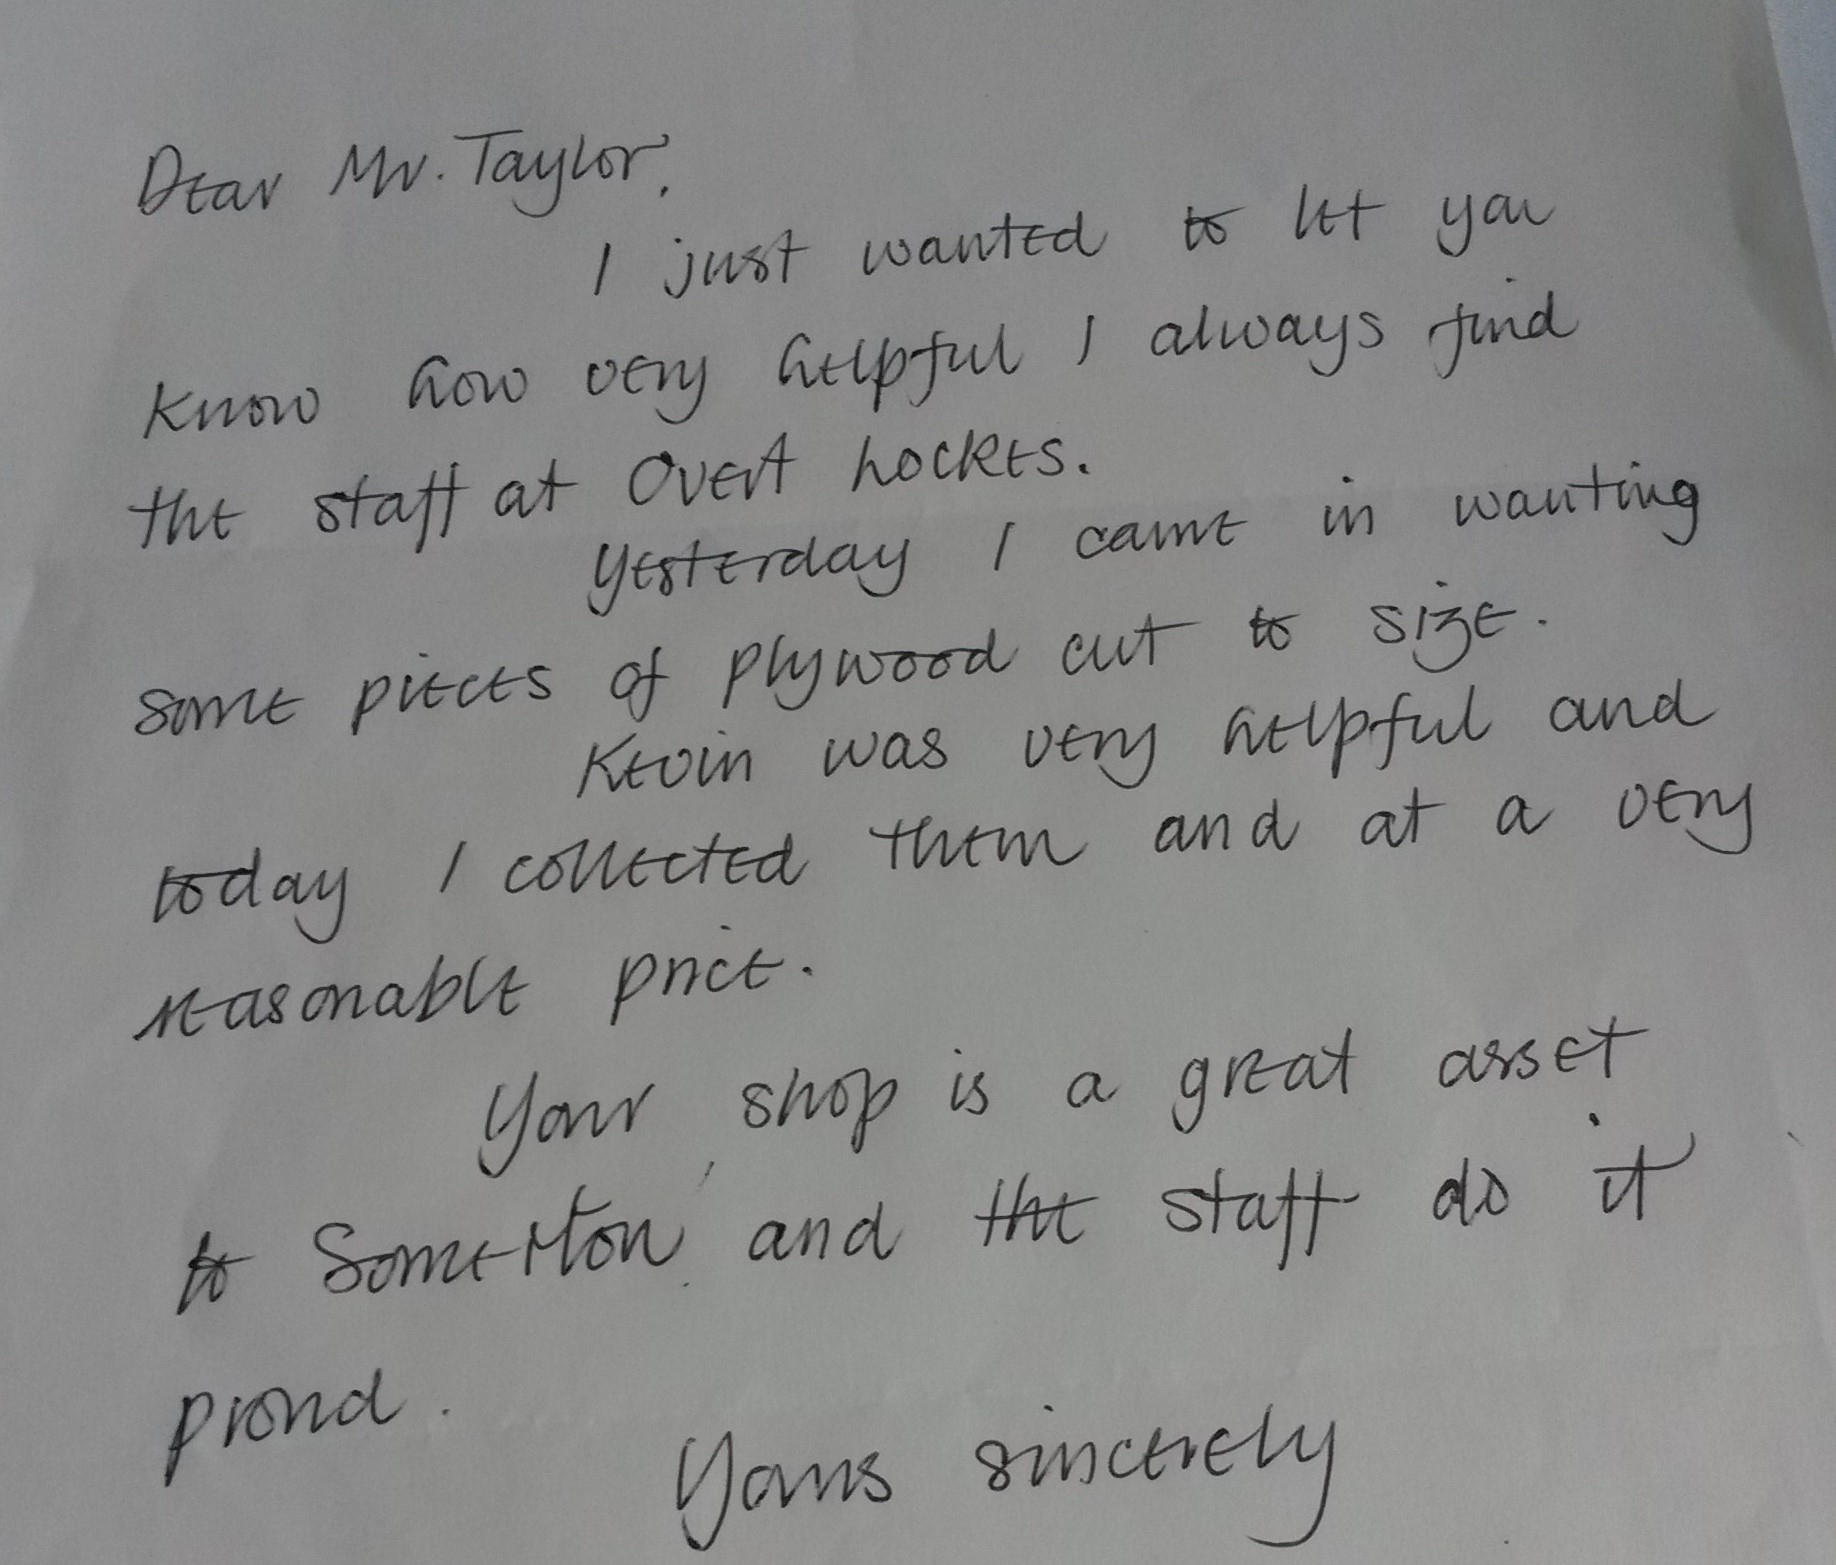 Dear Mr. Taylor,
I just wanted to let you
know how very helpful I always find
the staff at Overt Lockes.
Yesterday I came in wanting
some pieces of plywood cut to size.
Kevin was very helpful and
today I collected them and at a very
reasonable price.
Your shop is a great asset
to Somerton, and the staff do it
proud.
Yours sincerely